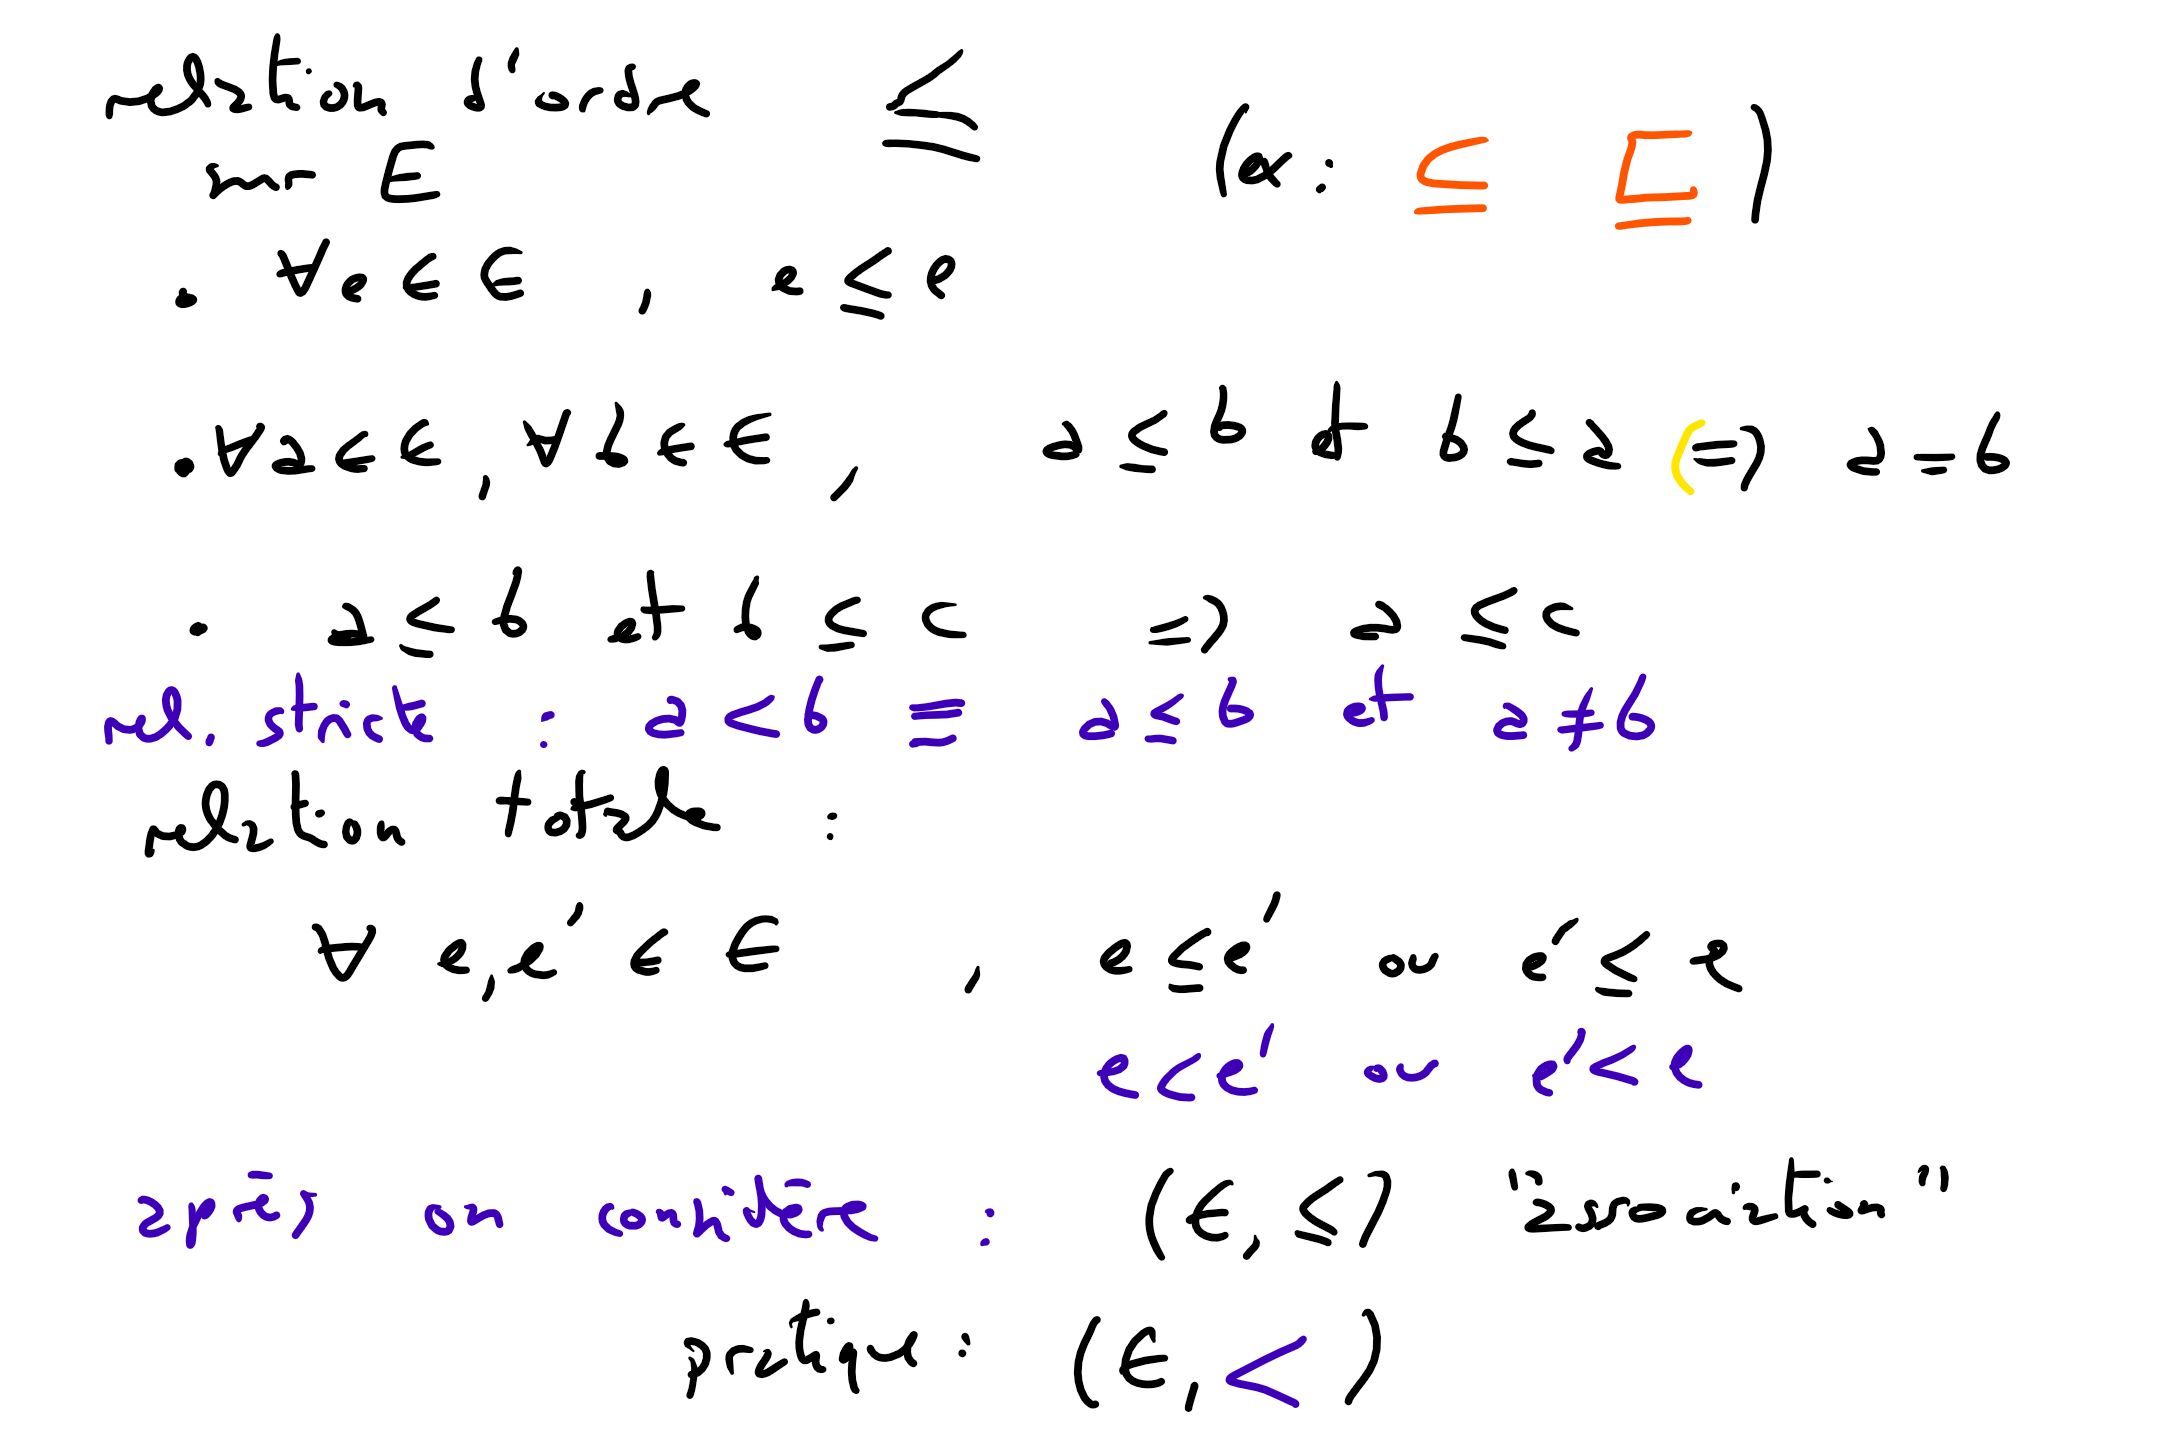 relation d'ordre ≤ (ex : ⊆ ⊑ )
sur E
• ∀e ∈ E , e ≤ e
• ∀a ∈ E , ∀b ∈ E , a ≤ b et b ≤ a (=) a = b
• a ≤ b et b ≤ c => a ≤ c
rel. stricte : a < b ≡ a ≤ b et a ≠ b
relation totale :
∀ e,e' ∈ E , e ≤ e' ou e' ≤ e
e < e' ou e' < e
après on considère : (E, ≤) "association"
pratique : (E, < )